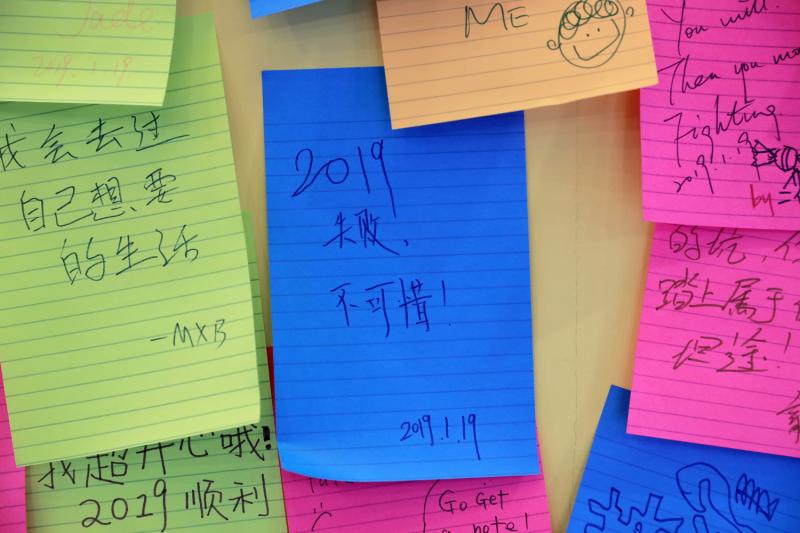 Jade
2019.1.19
我会去过
自己想要
的生活
-MXB
我超开心哦!
2019 顺利
ME
2019
失败,
不可惜!
2019.1.19
You will.
Then you
Fighting
2019.1.19
by
的坑,
踏上属于
坦途!
Go Get
note!